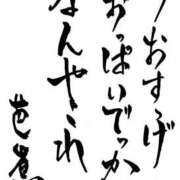 うおすげ
おっぱいでっか
なんやこれ
芭蕉